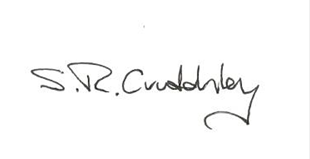 S.R. Cruddsley